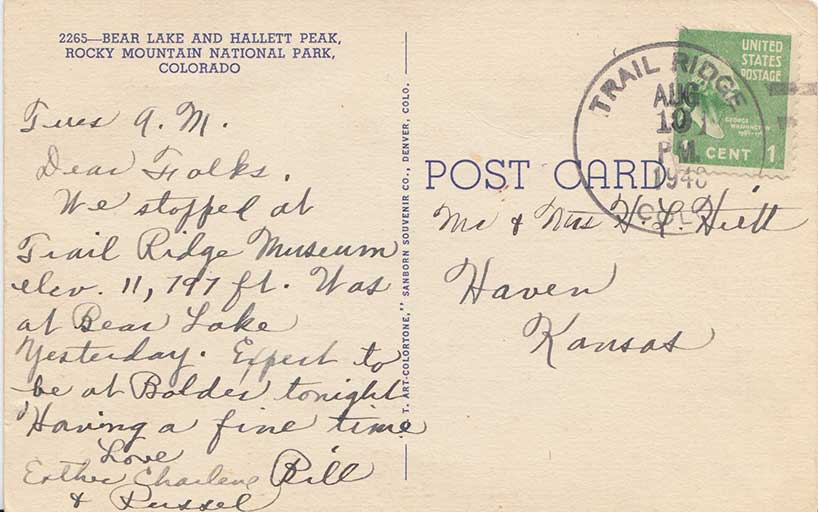 2265—BEAR LAKE AND HALLETT PEAK,
ROCKY MOUNTAIN NATIONAL PARK,
COLORADO
Tues A.M.
Dear Folks.
We stopped at
Trail Ridge Museum
elev. 11,797 ft. Was
at Bear Lake
Yesterday. Expect to
be at Bolder tonight
Having a fine time
Love
Esther Charlene Bill
& Russel
T. ART-COLORTONE," SANBORN SOUVENIR CO., DENVER, COLO.
POST CARD
TRAIL RIDGE
AUG
10
P.M.
COLO
UNITED
STATES
POSTAGE
GEORGE
WASHINGTON
1 CENT 1
Mr & Mrs H. L. Hiett
Haven
Kansas